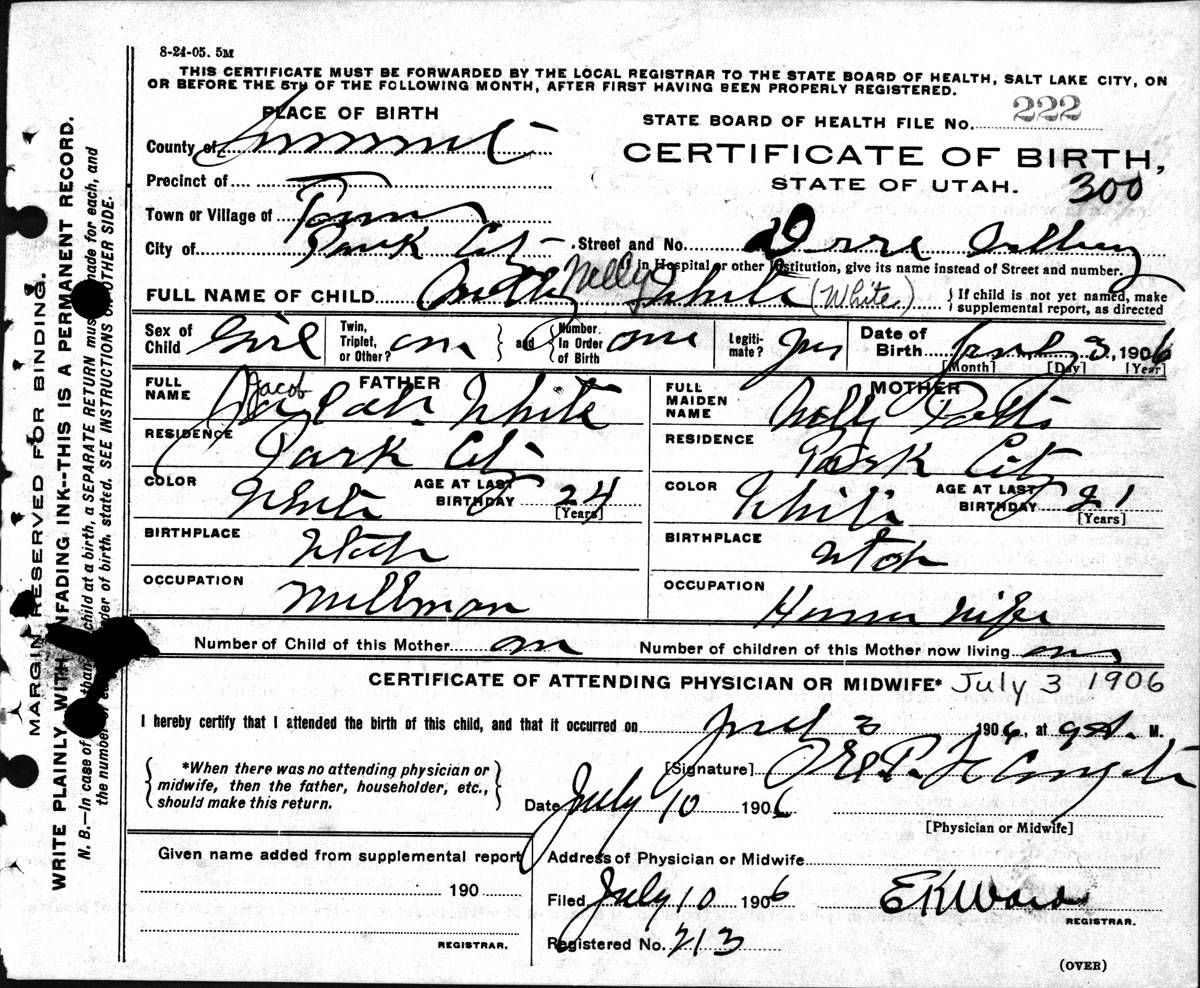 8-24-05. 5M
THIS CERTIFICATE MUST BE FORWARDED BY THE LOCAL REGISTRAR TO THE STATE BOARD OF HEALTH, SALT LAKE CITY, ON
OR BEFORE THE 5TH OF THE FOLLOWING MONTH, AFTER FIRST HAVING BEEN PROPERLY REGISTERED.
PLACE OF BIRTH
222
STATE BOARD OF HEALTH FILE No.
County of Summit
CERTIFICATE OF BIRTH,
Precinct of
STATE OF UTAH.
300
Town or Village of
City of Park City
Street and No.
If in Hospital or other Institution, give its name instead of Street and number.
FULL NAME OF CHILD Nelly White (White)
If child is not yet named, make
supplemental report, as directed
Sex of Child Girl
Twin, Triplet, or Other? one and Number in Order of Birth one
Legitimate? yes
Date of Birth July 3, 1906
[Month] [Day] [Year]
FULL NAME FATHER Jacob White
FULL MAIDEN NAME MOTHER Nelly Potts
RESIDENCE Park City
RESIDENCE Park City
COLOR White AGE AT LAST BIRTHDAY 24 [Years]
COLOR White AGE AT LAST BIRTHDAY 21 [Years]
BIRTHPLACE Utah
BIRTHPLACE Utah
OCCUPATION Millman
OCCUPATION House wife
Number of Child of this Mother one
Number of children of this Mother now living one
CERTIFICATE OF ATTENDING PHYSICIAN OR MIDWIFE* July 3 1906
I hereby certify that I attended the birth of this child, and that it occurred on July 3 1906, at 9 A. M.
*When there was no attending physician or
midwife, then the father, householder, etc.,
should make this return.
[Signature]
Date July 10 1906
[Physician or Midwife]
Given name added from supplemental report
Address of Physician or Midwife
190
Filed July 10 1906 EKWard
REGISTRAR.
REGISTRAR.
Registered No. 213
(OVER)
MARGIN RESERVED FOR BINDING.
WRITE PLAINLY WITH UNFADING INK--THIS IS A PERMANENT RECORD.
N. B.—In case of child at a birth, a SEPARATE RETURN must made for each, and
the number of order of birth, stated. SEE INSTRUCTIONS ON OTHER SIDE.